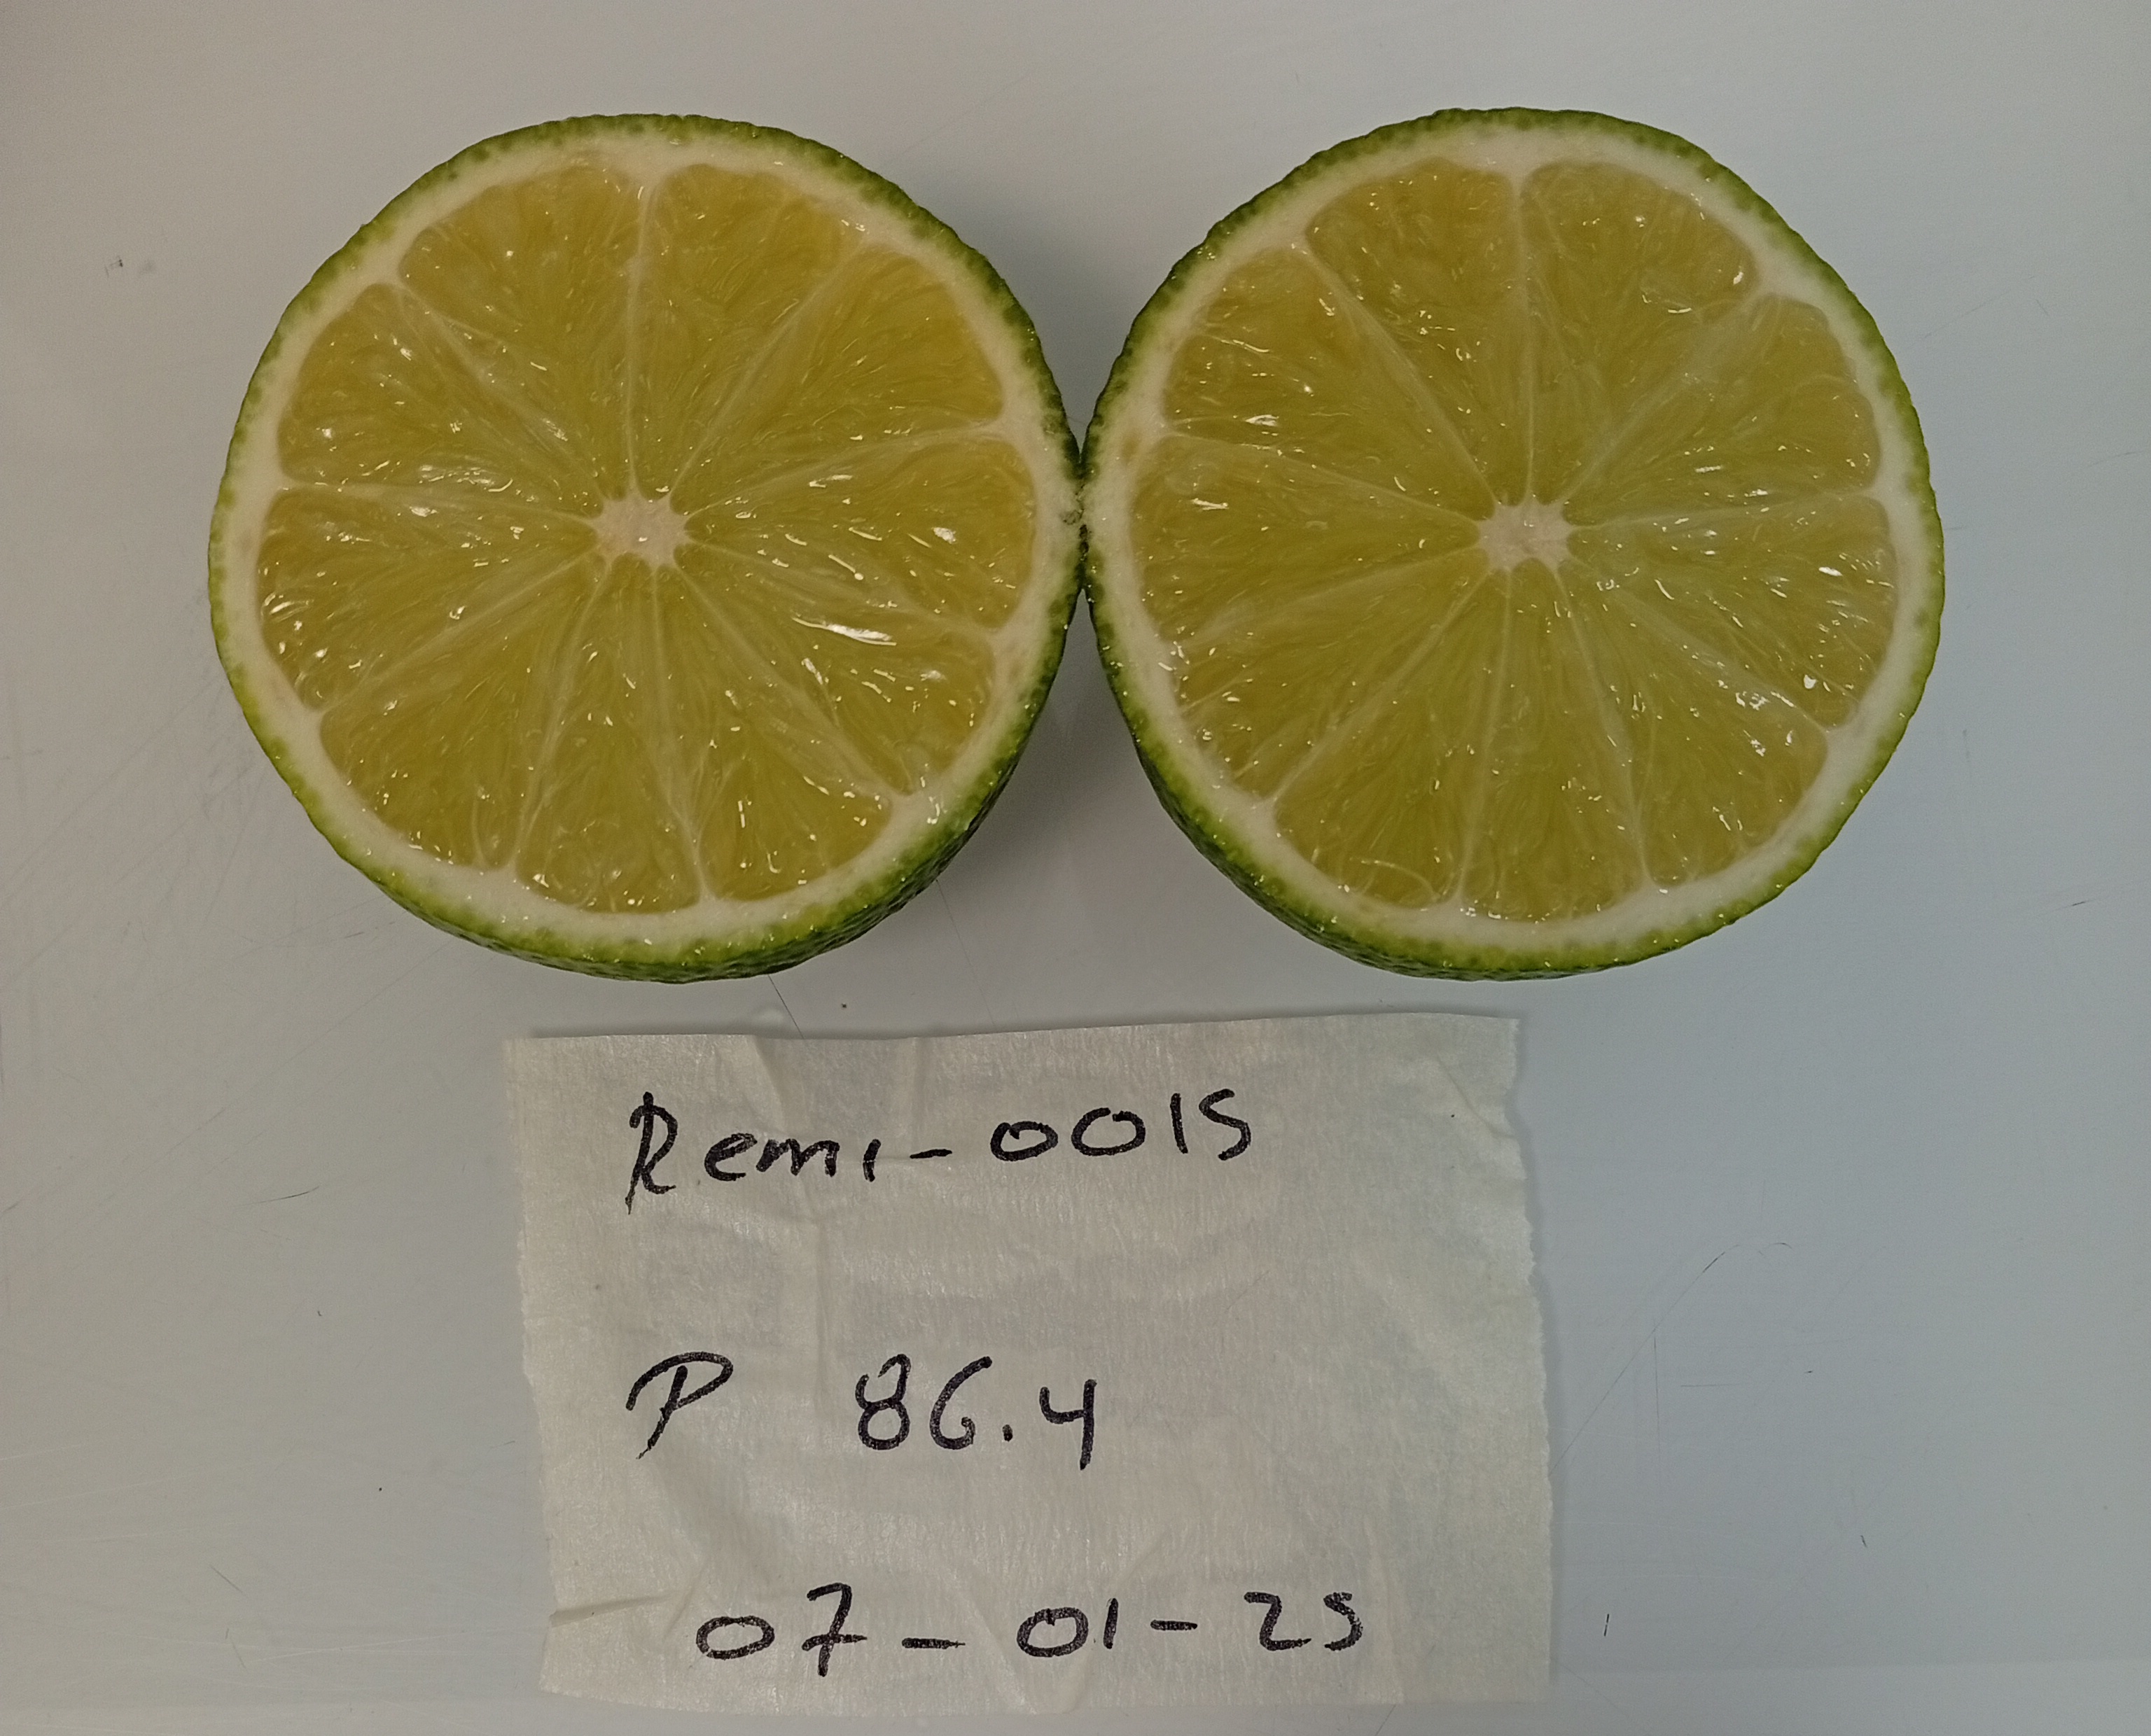 Remi-0015
P 86.4
07-01-25